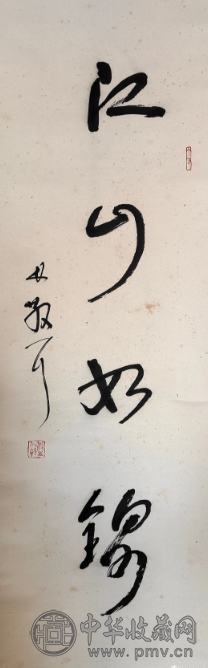 江山如錦
中华收藏网
www.pmv.cn